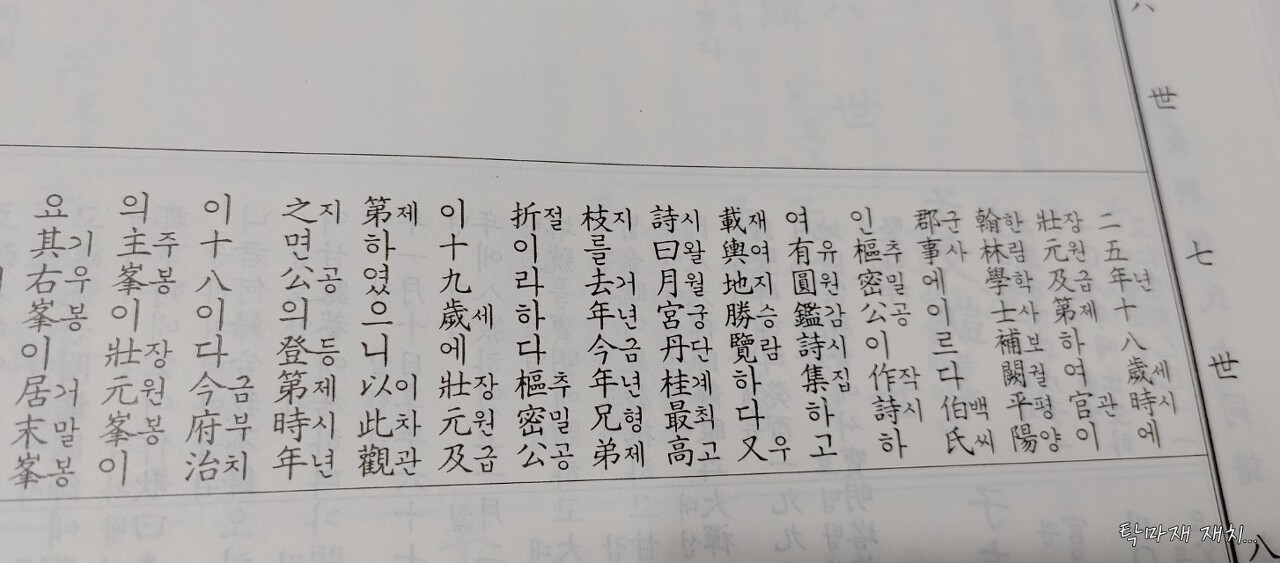 八世
七世
八
二五年년十八歲세時시에
壯장元원及급第제하여官관이
翰한林림學학士사補보闕궐平평陽양
郡군事사에이르다伯백氏씨
인樞추密밀公공이作작詩시하
여有유圓원鑑감詩시集집하고
載재輿여地지勝승覽람하다又우
詩시曰왈月월宮궁丹단桂계最최高고
枝지를去거年년今금年년兄형弟제
折절이라하다樞추密밀公공
이十九歲세에壯장元원及급
第제하였으니以이此차觀관
之지면公공의登등第제時시年년
이十八이다今금府부治치
의主주峯봉이壯장元원峯봉이
요其기右우峯봉이居거末말峯봉
탁마재 재치...